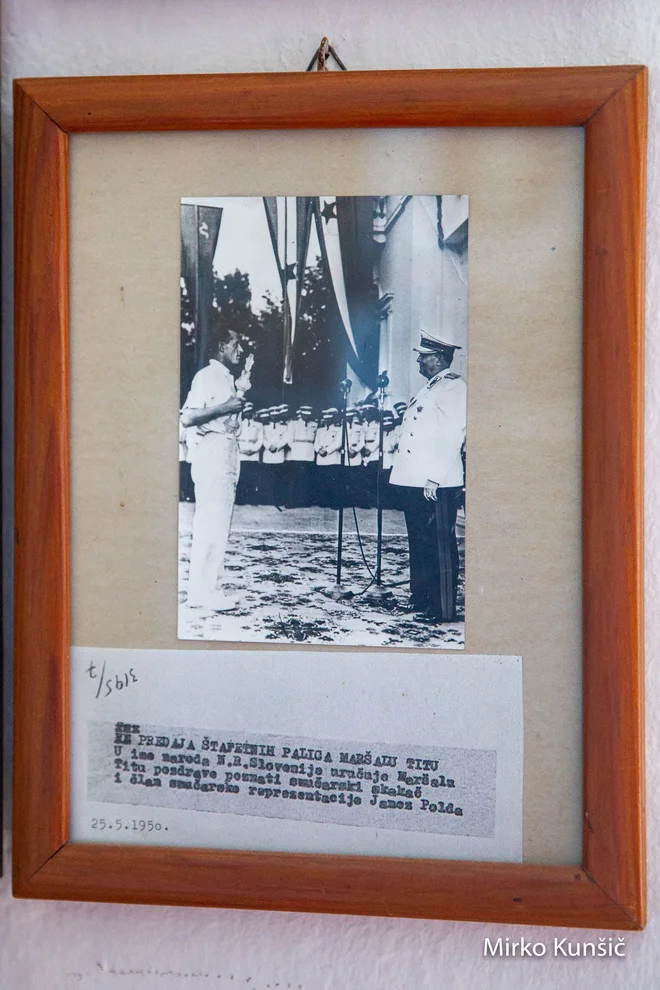 3195/7
ZE PREDAJA ŠTAFETNIH PALICA MARŠALU TITU
U ime naroda N.R.Slovenije uručuje Maršalu
Titu pozdrave poznati smučarski skakač
i član smučarske reprezentacije Janez Polda
25.5.195o.
Mirko Kunšič